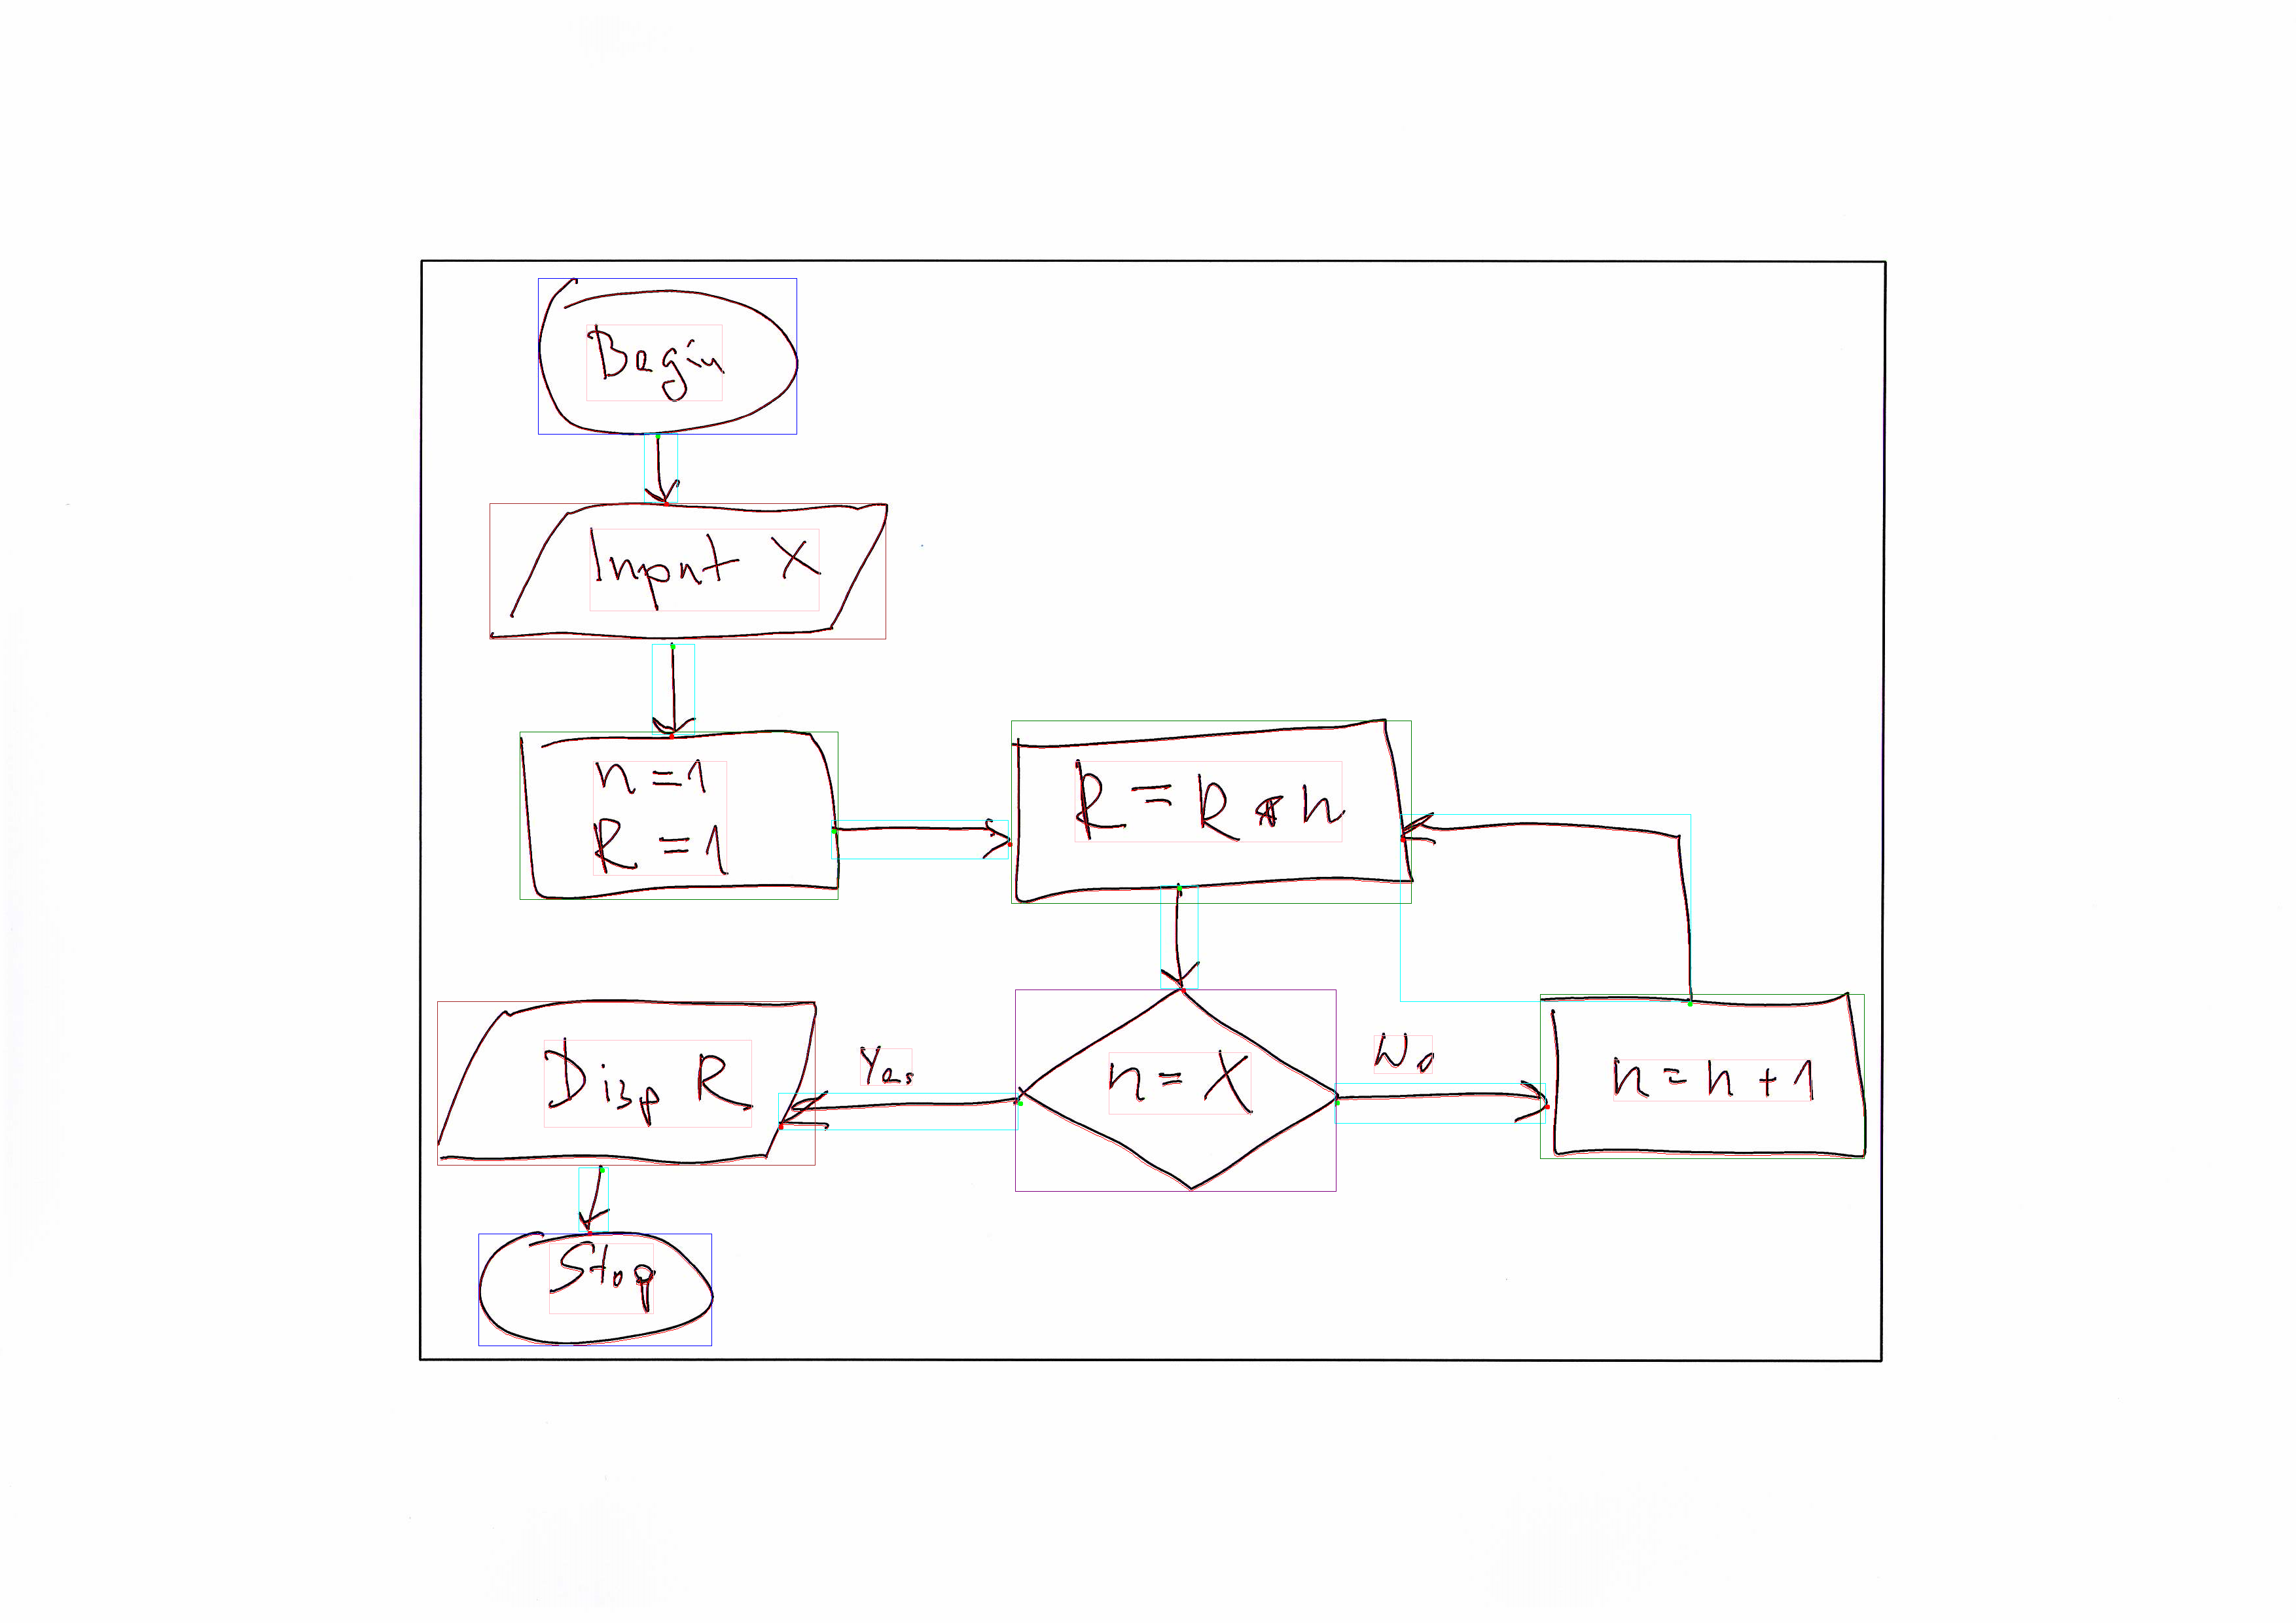 Begin
Input X
n=1
R=1
R=R*n
n=X
Yes
No
n=n+1
Disp R
Stop